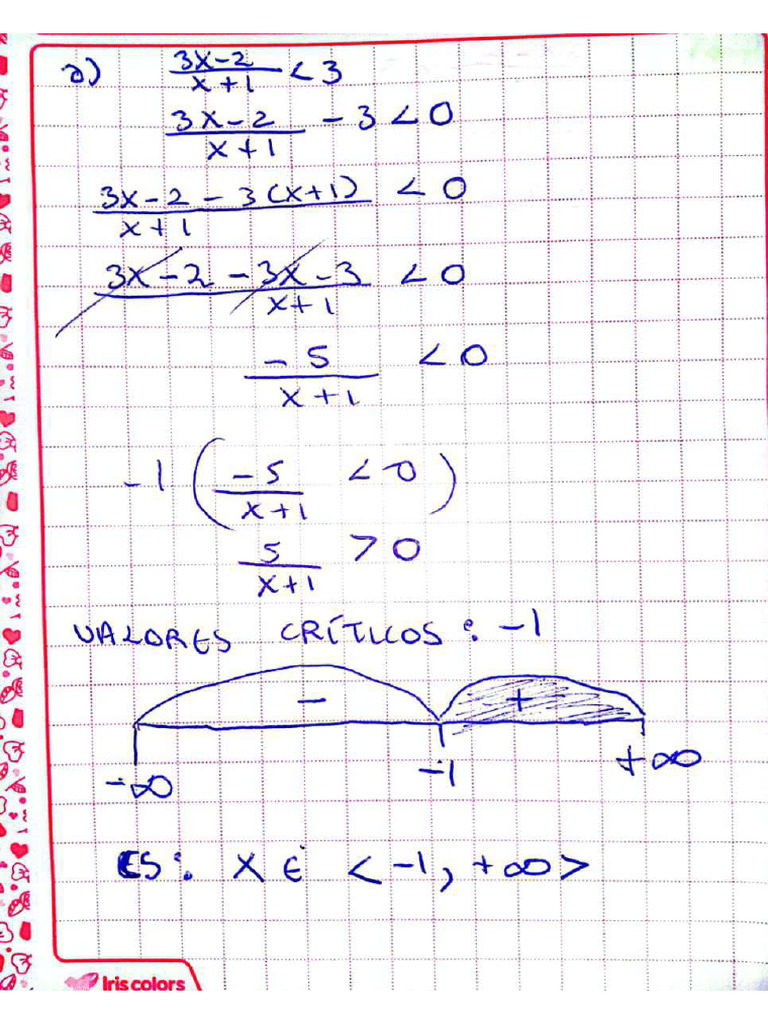 a) (3x-2)/(x+1) < 3
(3x-2)/(x+1) - 3 < 0
(3x-2 - 3(x+1))/(x+1) < 0
(3x-2 - 3x-3)/(x+1) < 0
-5/(x+1) < 0
-1 (-5/(x+1) < 0)
5/(x+1) > 0
VALORES CRÍTICOS: -1
- +
-∞ -1 +∞
CS: X ∈ < -1, +∞ >
Iris colors